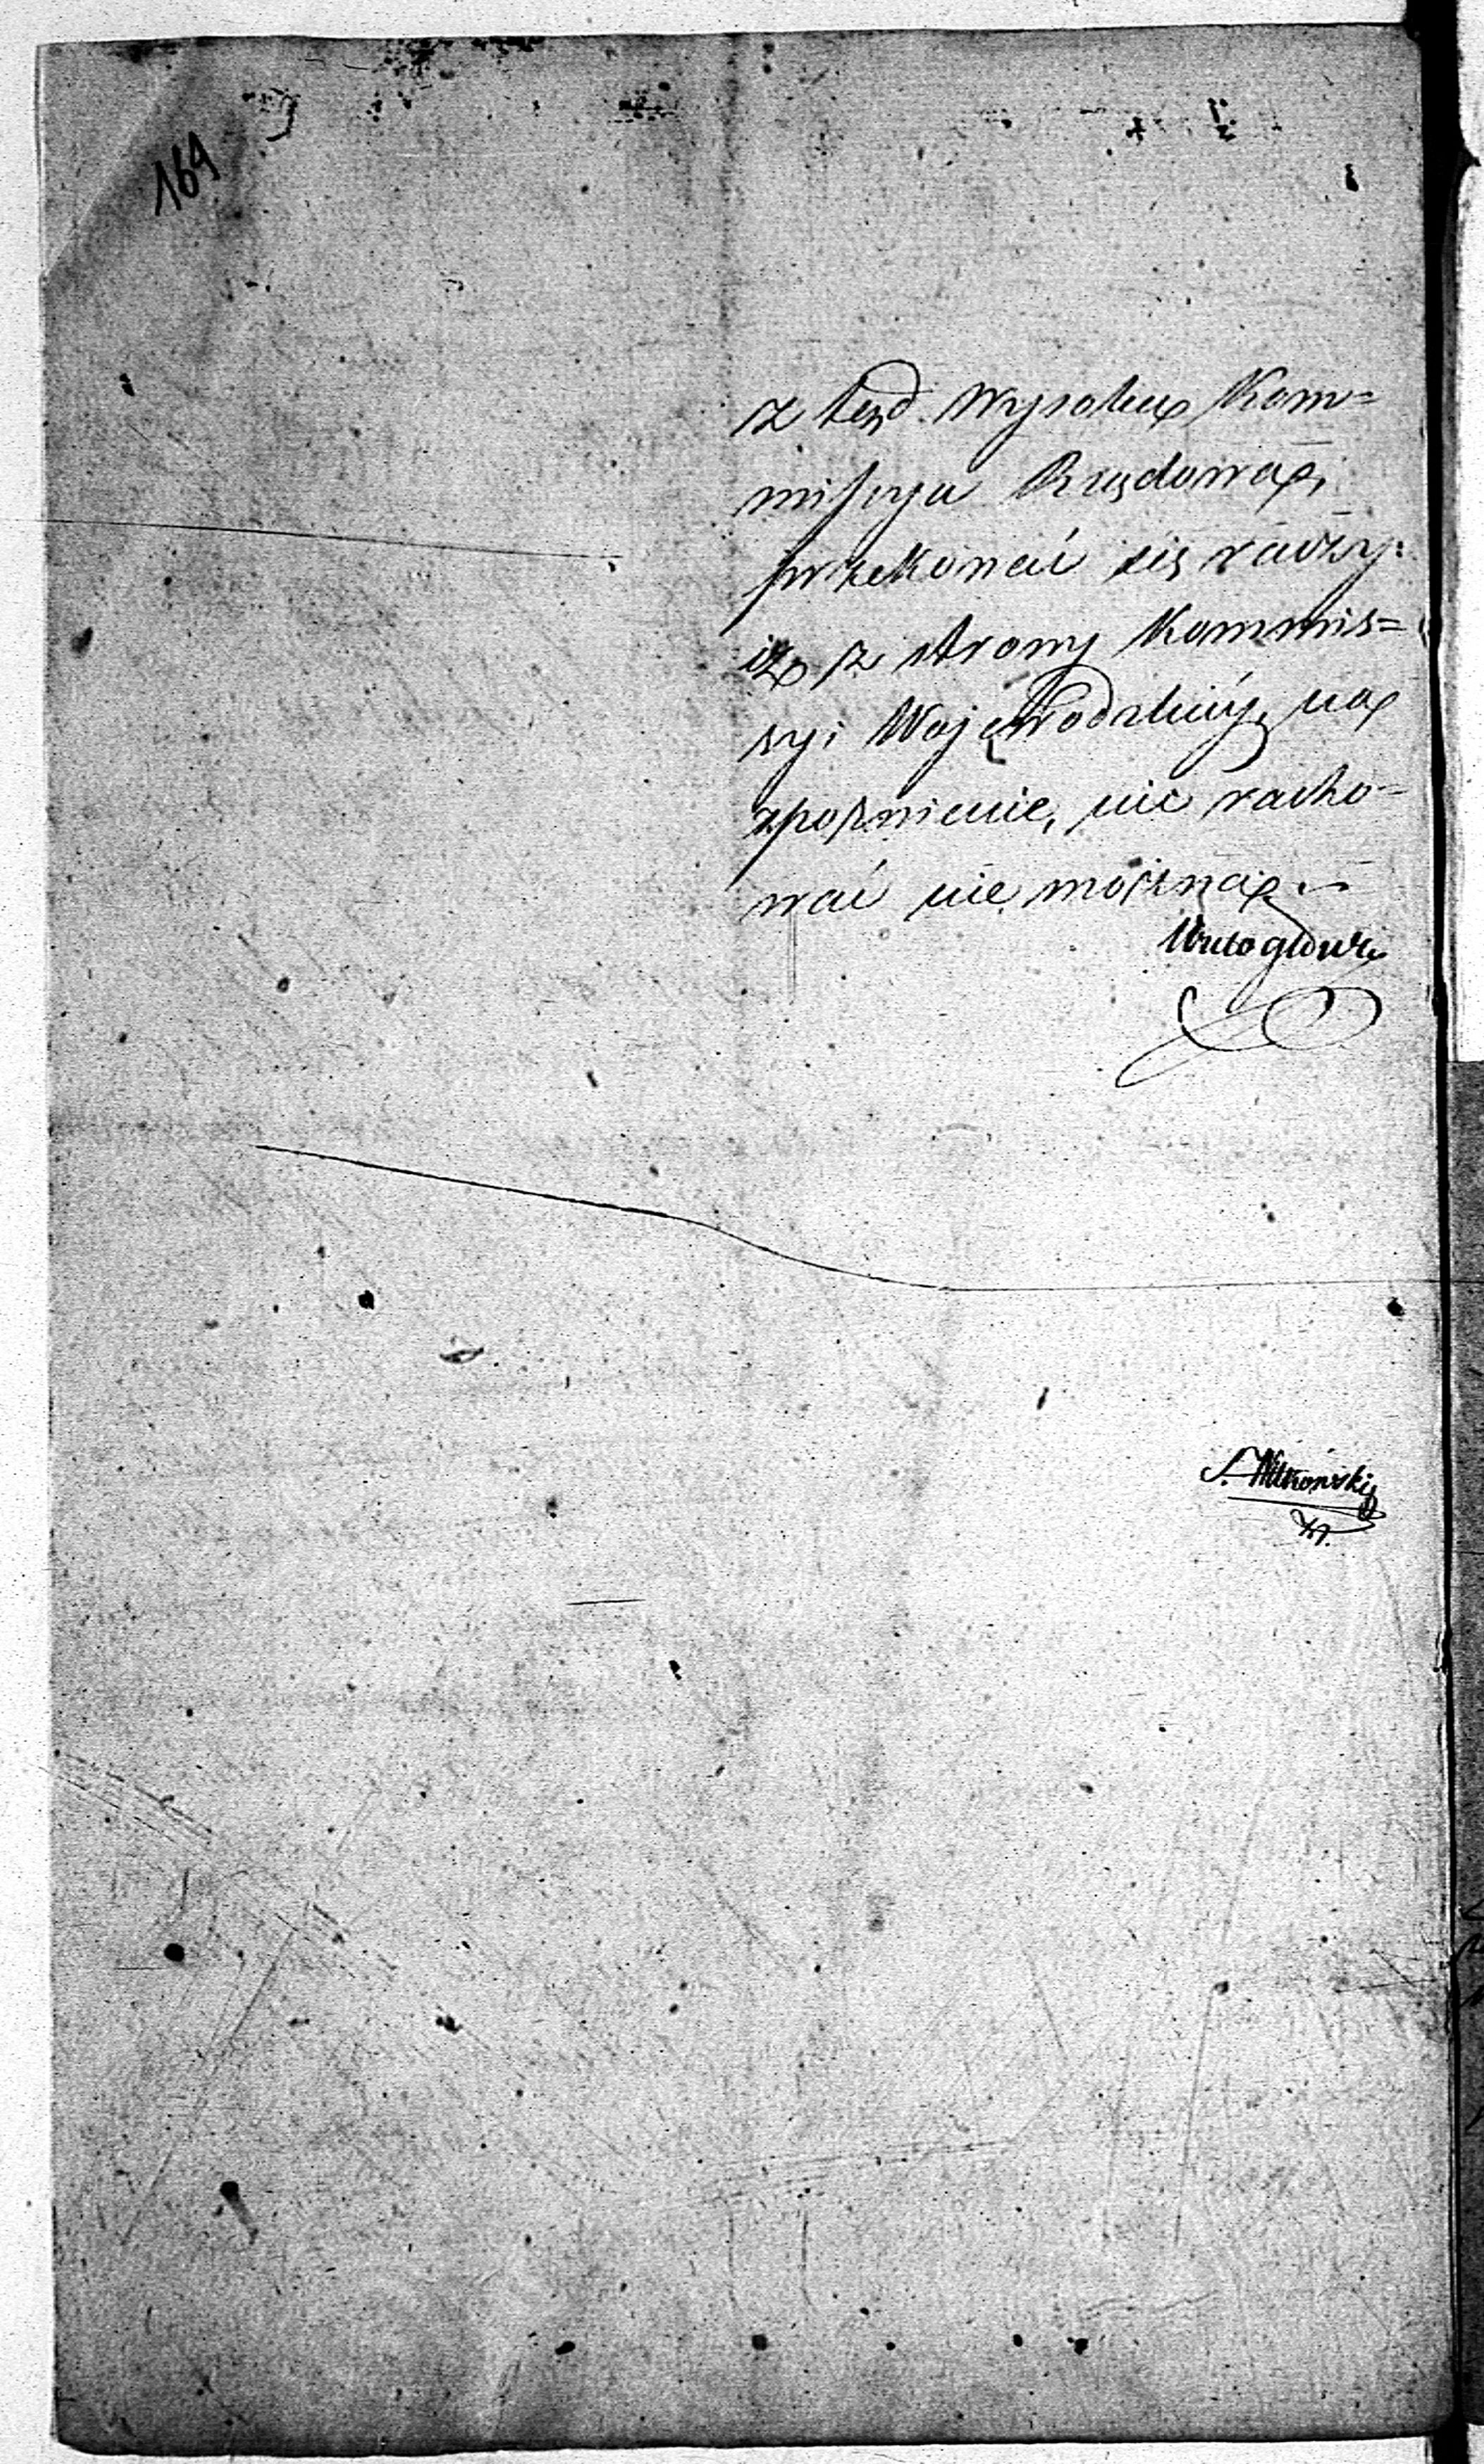 164
z tąd Wysoka Kom=
missya Rządowa,
przekonać się raczy:
iż z strony Kommis=
syi Wojewodzkiéy na
spoźnienie, nic racho-
wać nie można.
Wielogłowski
S. Witkowski